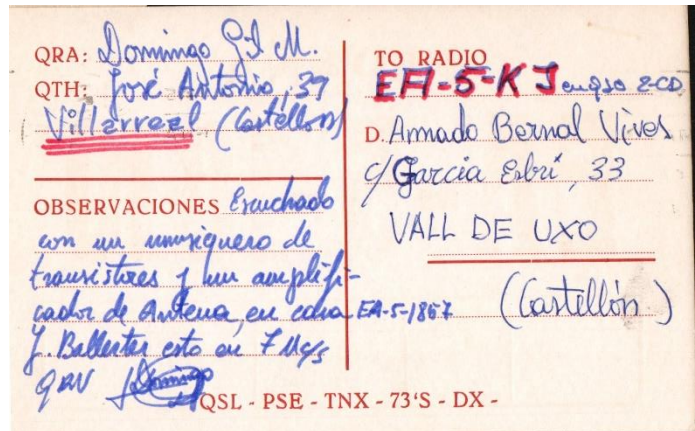 QRA: Domingo Gil M.
QTH: José Antonio, 39
Villarreal (Castellón)
OBSERVACIONES Escuchado
con un musiquero de
transistores y un amplifi-
cador de Antena, en casa EA-5-1867
J. Ballester esto en 7 Mc/s
QRV Domingo
TO RADIO
en QSO 2-CD
D. Armado Bernal Vives
c/ García Esbrí, 33
VALL DE UXO
(Castellón)
QSL - PSE - TNX - 73'S - DX -